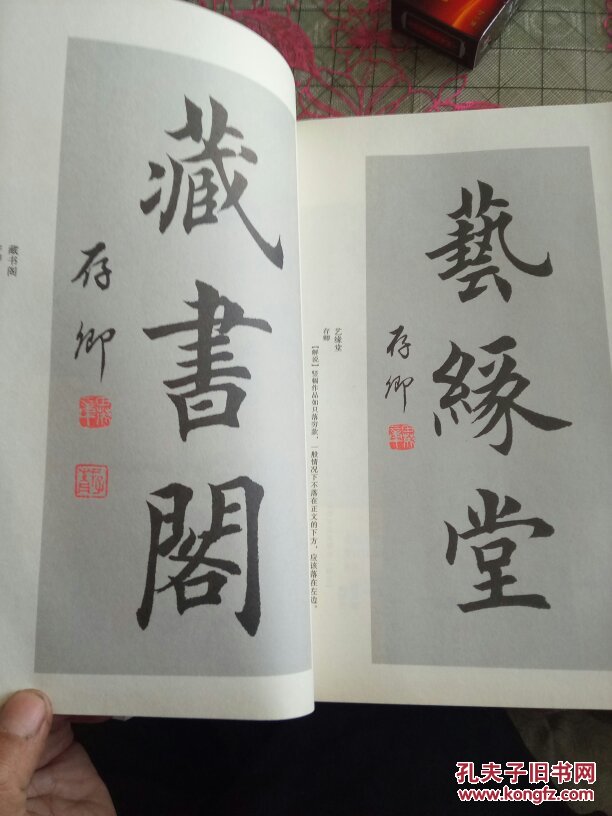 藏書閣
存卿
藏书阁
藝緣堂
存卿
艺缘堂
存卿
【解说】竖幅作品如只落穷款，一般情况下不落在正文的下方，应该落在左边。
孔夫子旧书网
www.kongfz.com